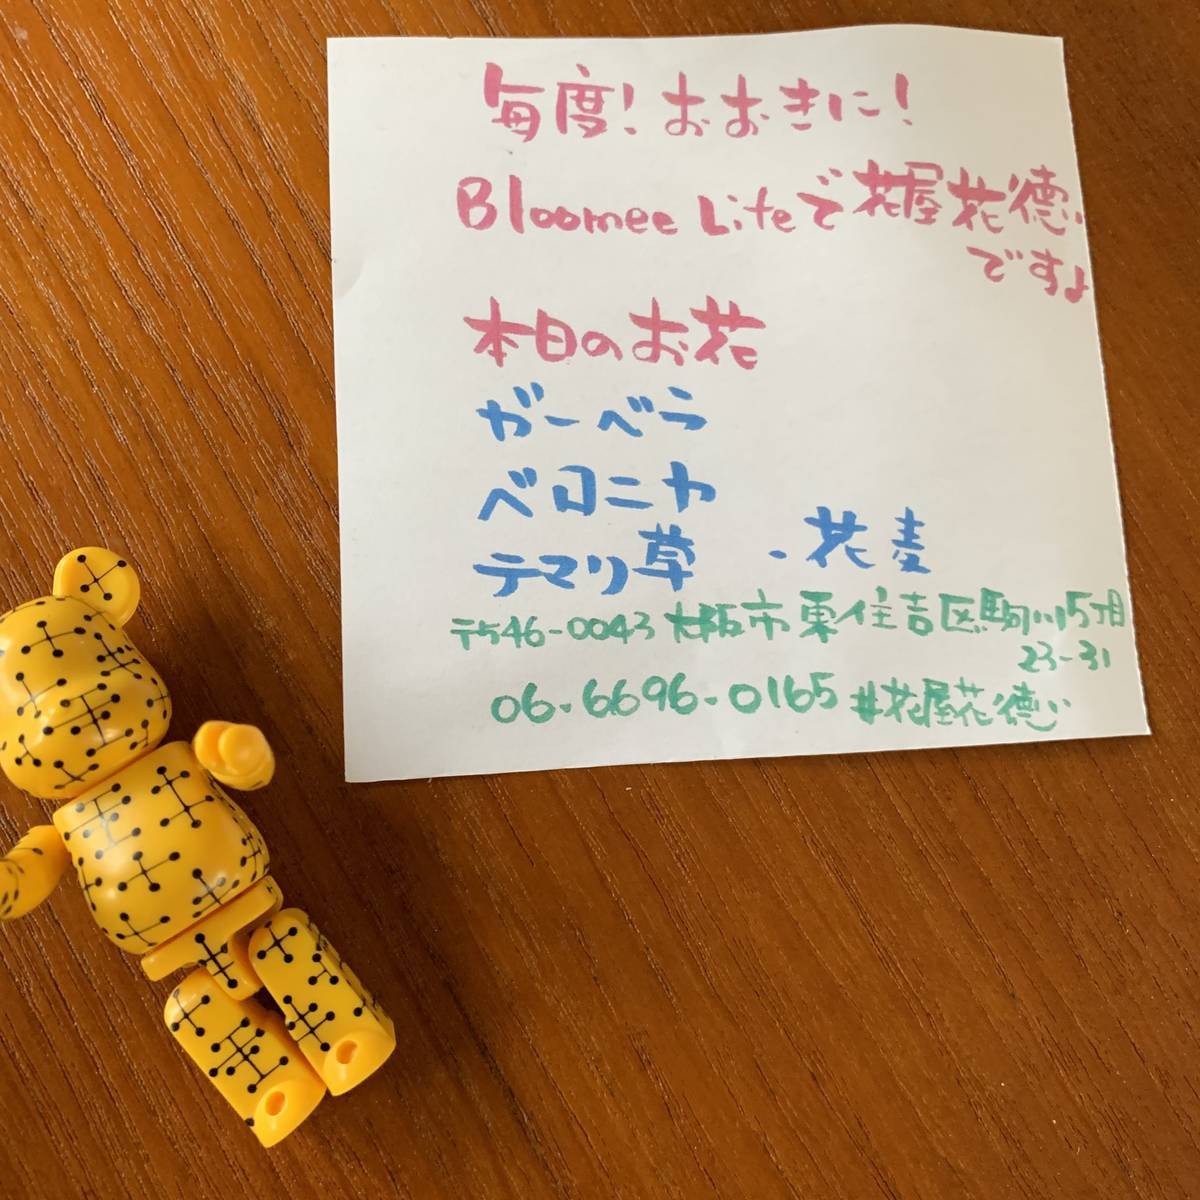 毎度!おおきに!
Bloomee Lifeで花屋花德い
ですよ
本日のお花
ガーベラ
ベロニカ
テマリ草 ・花麦
〒546-0043 大阪市東住吉区駒川5丁目
23-31
06-6696-0165 #花屋花德い